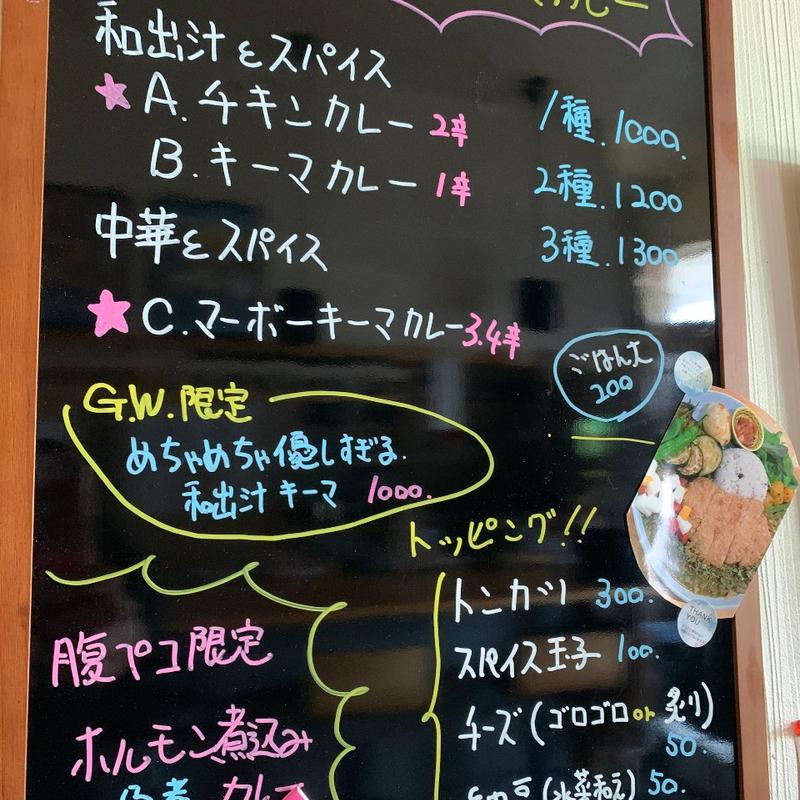 カレー
和出汁とスパイス
★A.チキンカレー 2辛 1種.1000.
B.キーマカレー 1辛 2種.1200
中華とスパイス 3種.1300
★C.マーボーキーマカレー 3.4辛
ごはん大
200
G.W.限定
めちゃめちゃ優しすぎる.
和出汁キーマ 1000.
トッピング!!
トンカツ 300.
スパイス玉子 100.
チーズ(ゴロゴロor炙り)
50.
50.
腹ペコ限定
ホルモン煮込み
カレー
THANK
YOU